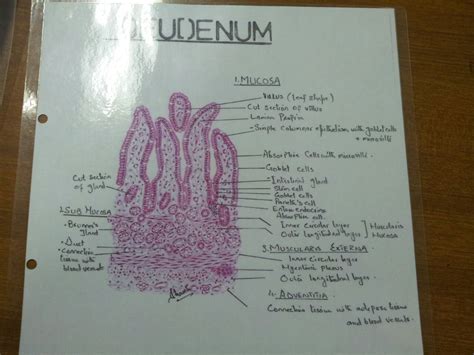 DEUDENUM
1. MUCOSA
Villus (leaf shape)
Cut section of villus
Lamina Propria
Simple Columnar epithelium with goblet cells
+ microvilli
Absorptive Cells with microvilli
Goblet cells
Intestinal gland
Stem cell
Goblet cells
Paneth's cell
Entero endocrine
Absorptive cell
Inner Circular layer
Outer Longitudinal layer
Muscularis
Mucosa
3. MUSCULARIS EXTERNA
Inner circular layer
Myenteric plexus
Outer longitudinal layer
4. ADVENTITIA
Connective tissue with adipose tissue
and blood vessels.
Cut section
of gland
2. SUB MUCOSA
Brunner's
Gland
Duct
Connective
tissue with
blood vessels